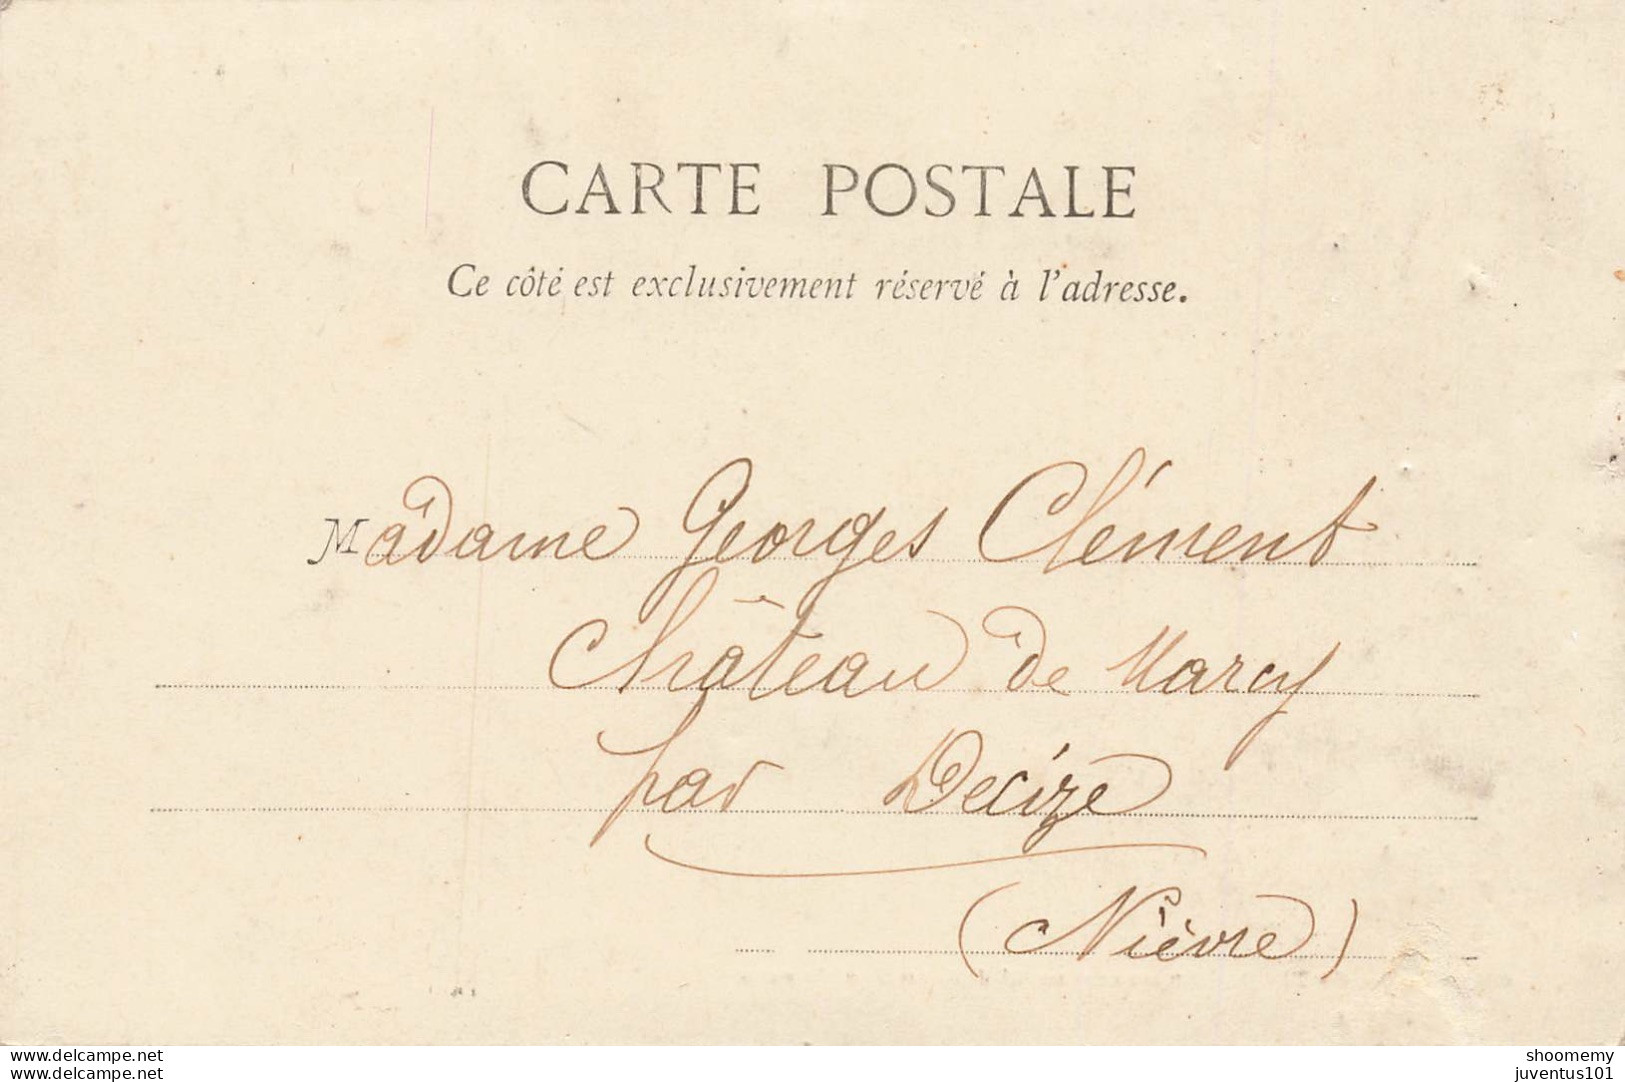 CARTE POSTALE
Ce côté est exclusivement réservé à l'adresse.
Madame Georges Clément
Château de Marcy
par Decize
(Nièvre)
www.delcampe.net
www.delcampe.net
shoomemy
juventus101